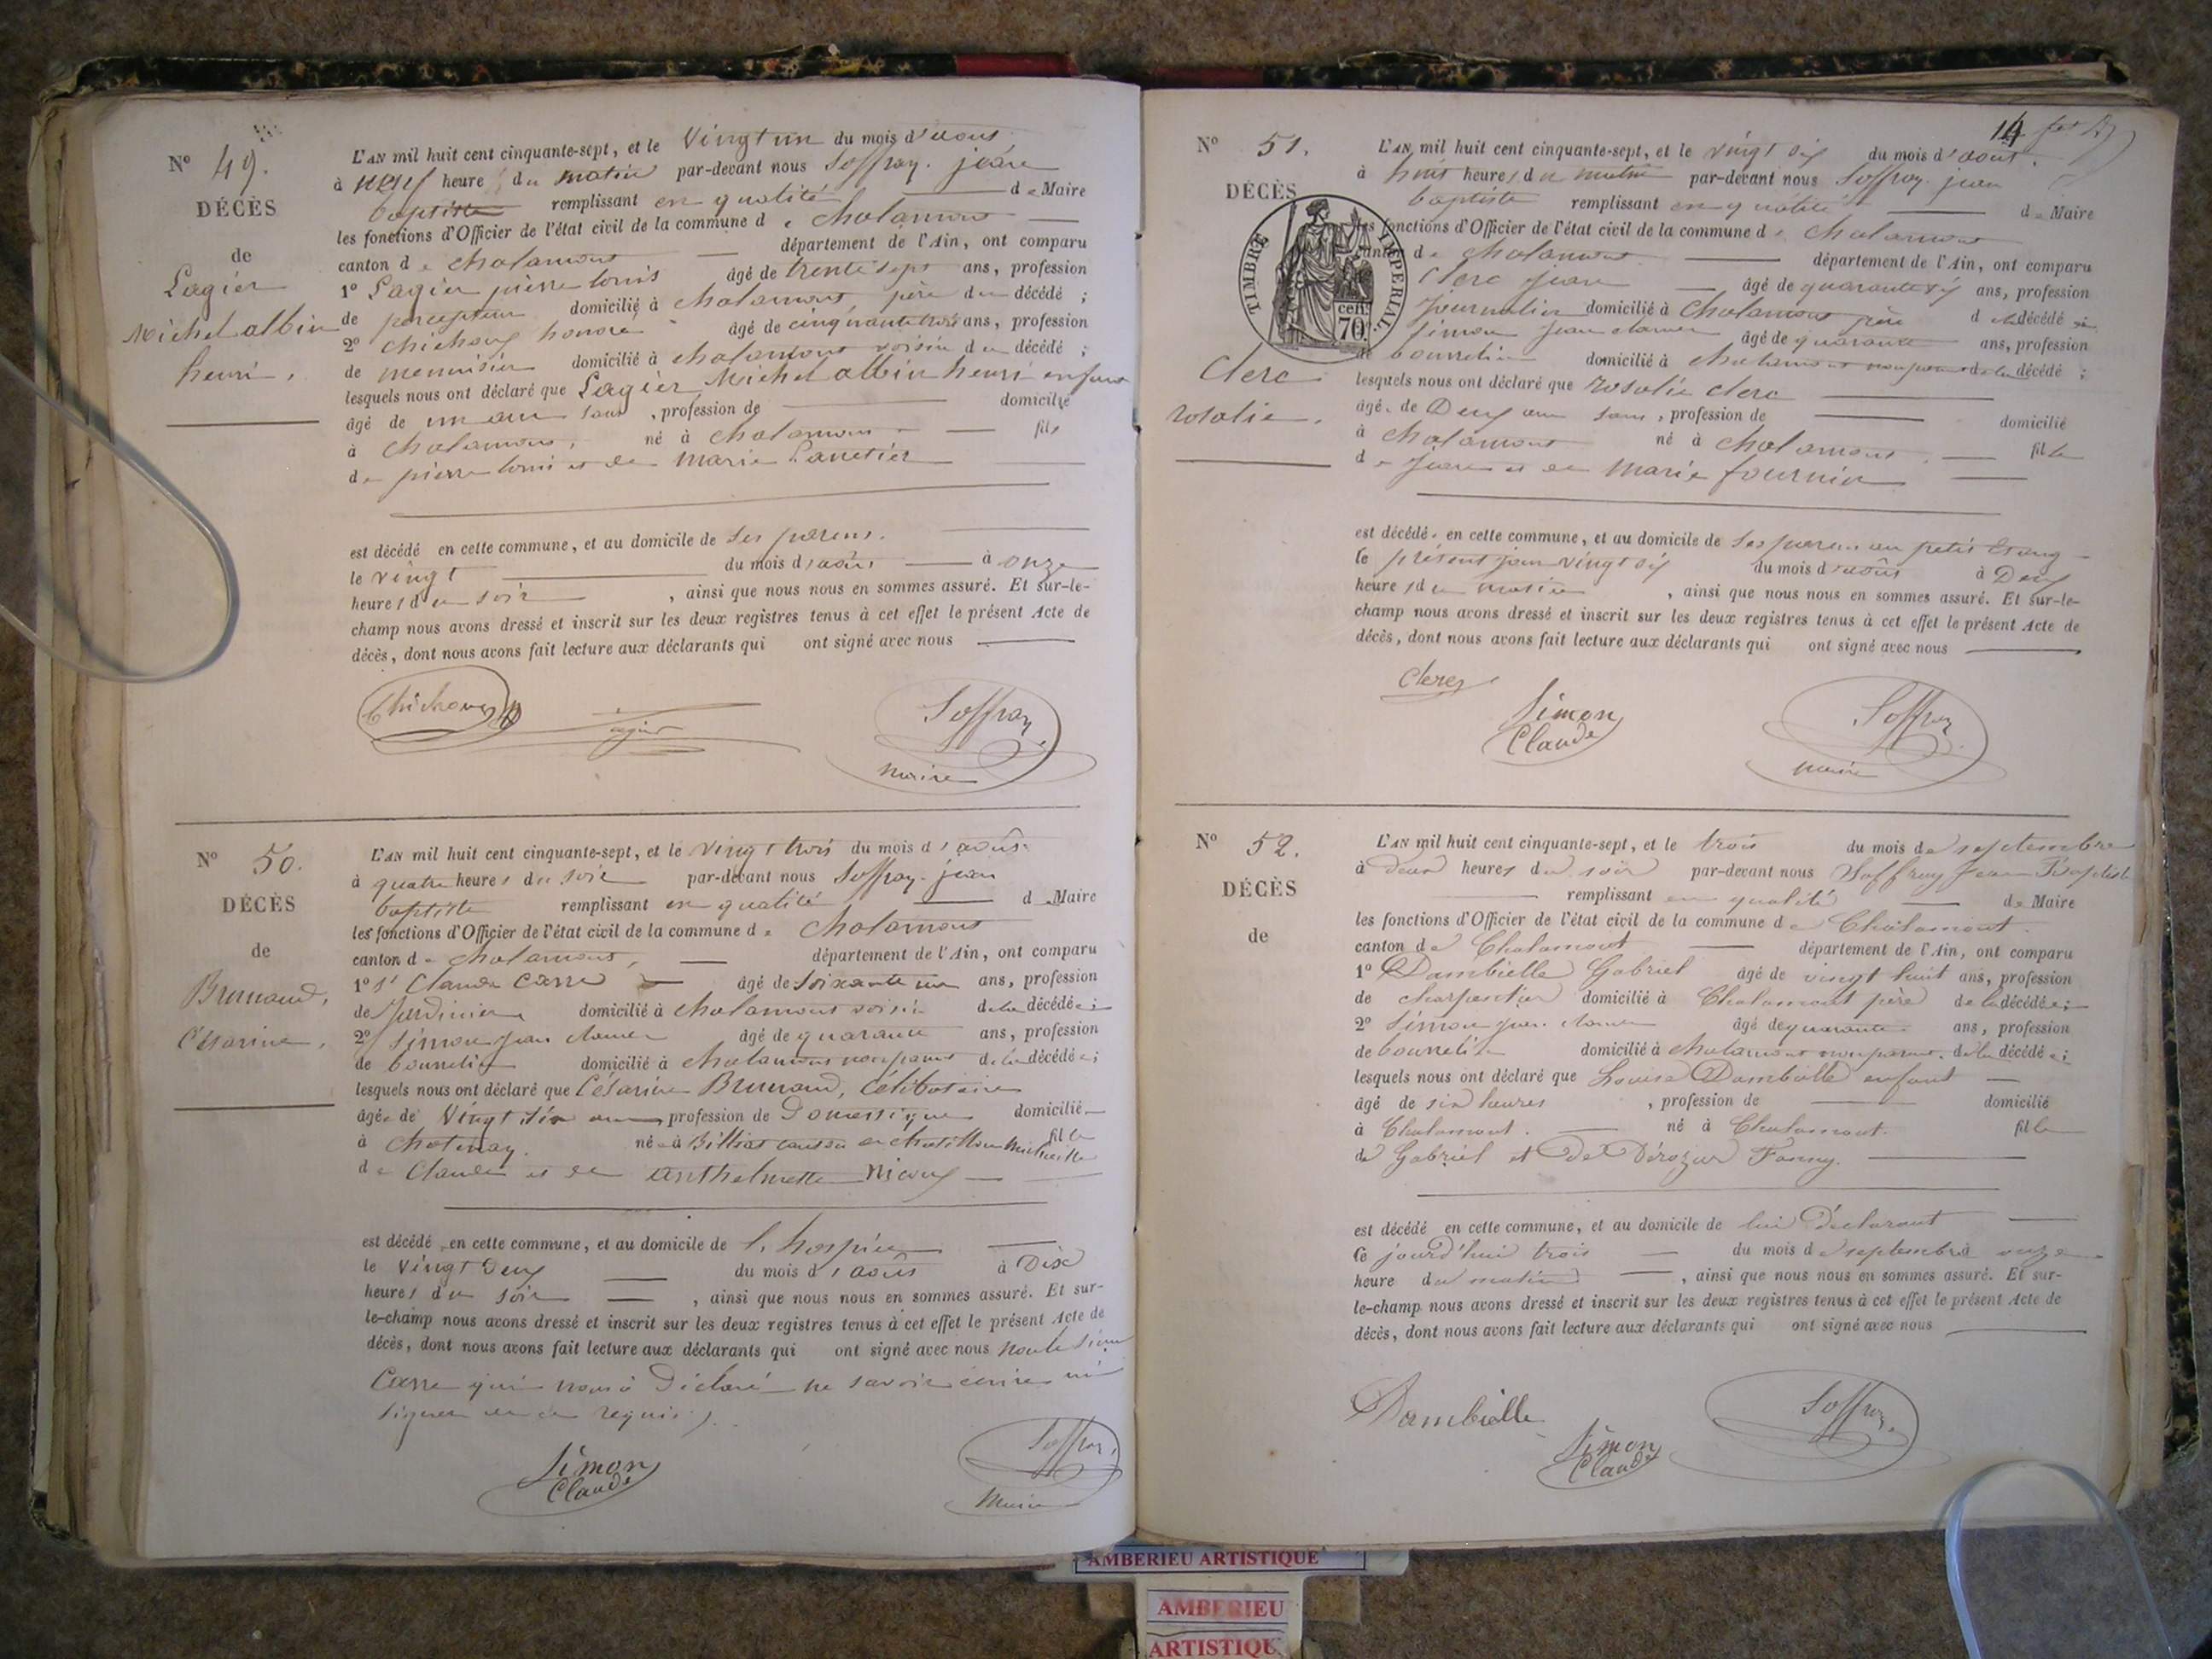 N° 49.
DÉCÈS
de
Lagier
Michel albin
henri.
L'AN mil huit cent cinquante-sept, et le Vingt un du mois d'aout
à neuf heure du matin par-devant nous Soffray. jean
baptiste remplissant en qualité de Maire
les fonctions d'Officier de l'état civil de la commune de chalamont
canton de chalamont département de l'Ain, ont comparu
1° Lagier pierre louis âgé de trente sept ans, profession
de percepteur domicilié à chalamont, père du décédé ;
2° honoré âgé de cinquante trois ans, profession
de menuisier domicilié à chalamont voisin du décédé ;
lesquels nous ont déclaré que Lagier Michel albin henri enfant
âgé de un an sans , profession de domicilié
à chalamont, né à chalamont fils
de pierre louis et de marie
est décédé en cette commune, et au domicile de ses parens.
le vingt du mois d'août à onze
heures du soir , ainsi que nous nous en sommes assuré. Et sur-le-
champ nous avons dressé et inscrit sur les deux registres tenus à cet effet le présent Acte de
décès, dont nous avons fait lecture aux déclarants qui ont signé avec nous
Lagier Soffray
maire
N° 50.
DÉCÈS
de
Brunaud,
Césarine.
L'AN mil huit cent cinquante-sept, et le vingt trois du mois d'août
à quatre heures du soir par-devant nous Soffray. jean
baptiste remplissant en qualité de Maire
les fonctions d'Officier de l'état civil de la commune de chalamont
canton de chalamont, département de l'Ain, ont comparu
1° Claude Carre âgé de soixante un ans, profession
de Jardinier domicilié à chalamont voisin de la décédée ;
2° Simon jean claude âgé de quarante ans, profession
de bourrelier domicilié à chalamont non parent de la décédée ;
lesquels nous ont déclaré que Césarine Brunaud, Célibataire
âgée de Vingt ans profession de Domestique domicilié
à chatenay. née à Billiat canton de chatillon michaille fille
de Claude et de anthelmette
est décédé en cette commune, et au domicile de l'hospice
le Vingt Deux du mois d'août à Dix
heures du soir , ainsi que nous nous en sommes assuré. Et sur-
le-champ nous avons dressé et inscrit sur les deux registres tenus à cet effet le présent Acte de
décès, dont nous avons fait lecture aux déclarants qui ont signé avec nous non le sieur
Carre qui nous a Déclaré ne savoir écrire ni
signer de ce requis).
Simon
Claude
Soffray
Maire
N° 51.
DÉCÈS
TIMBRE IMPERIAL.
cen.
70.
Clerc
rosalie.
L'AN mil huit cent cinquante-sept, et le vingt six du mois d'aout.
à huit heures du matin par-devant nous Soffray. jean
baptiste remplissant en qualité de Maire
les fonctions d'Officier de l'état civil de la commune de chalamont
canton de chalamont département de l'Ain, ont comparu
Clerc jean âgé de quarante six ans, profession
journalier domicilié à chalamont père de la décédé
Simon jean claude âgé de quarante ans, profession
de bourrelier domicilié à chalamont non parent de la décédé ;
lesquels nous ont déclaré que rosalie clerc
âgé. de Deux ans sans , profession de domicilié
à chalamont né à chalamont. fille
de Jean et de Marie fournier
est décédé. en cette commune, et au domicile de ses parens au petit Etang
le présent jour vingt six du mois d'août à Deux
heures du matin , ainsi que nous nous en sommes assuré. Et sur-le-
champ nous avons dressé et inscrit sur les deux registres tenus à cet effet le présent Acte de
décès, dont nous avons fait lecture aux déclarants qui ont signé avec nous
Clerc
Simon
Claude
Soffray
maire
N° 52.
DÉCÈS
de
L'AN mil huit cent cinquante-sept, et le trois du mois de septembre
à deux heures du soir par-devant nous Soffray Jean Baptiste
remplissant en qualité de Maire
les fonctions d'Officier de l'état civil de la commune de Chalamont.
canton de Chalamont département de l'Ain, ont comparu
1° Dambielle Gabriel âgé de vingt huit ans, profession
de charpentier domicilié à Chalamont père de la décédée ;
2° Simon jean claude âgé de quarante ans, profession
de bourrelier domicilié à chalamont non parent. de la décédée ;
lesquels nous ont déclaré que Louise Dambielle enfant
âgé de six heures , profession de domicilié
à Chalamont. né à Chalamont. fille
de Gabriel et de Fanny.
est décédé en cette commune, et au domicile de lui Déclarant
Ce jourd'hui trois du mois de septembre à onze
heure du matin , ainsi que nous nous en sommes assuré. Et sur-
le-champ nous avons dressé et inscrit sur les deux registres tenus à cet effet le présent Acte de
décès, dont nous avons fait lecture aux déclarants qui ont signé avec nous
Dambielle
Simon
Claude
Soffray
AMBERIEU ARTISTIQUE
AMBERIEU
ARTISTIQU